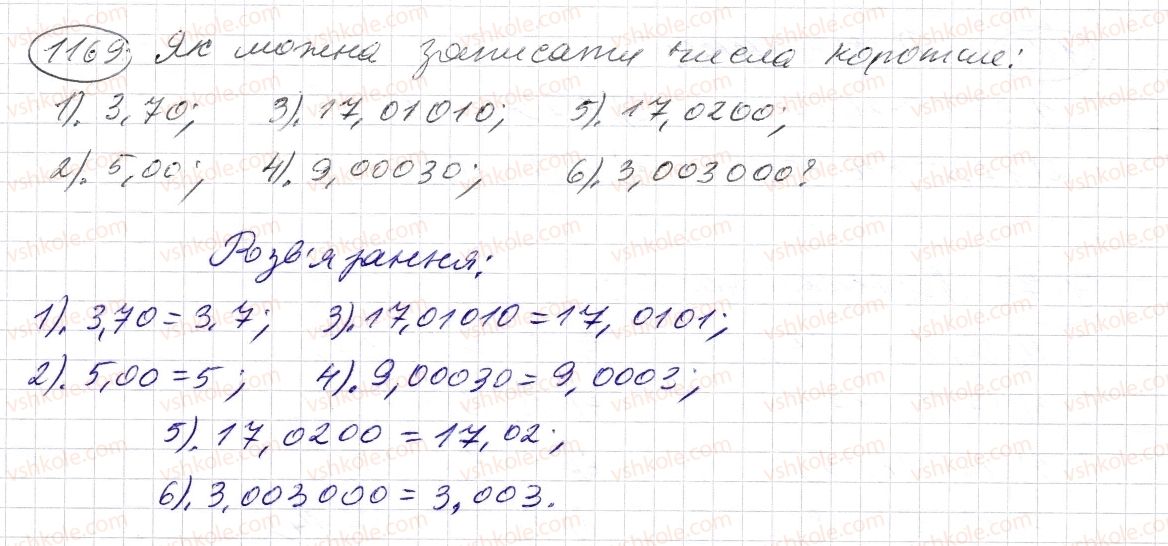 1169. Як можна записати числа коротше:
1). 3,70; 3). 17,01010; 5). 17,0200;
2). 5,00; 4). 9,00030; 6). 3,003000?
Розв'язання:
1). 3,70 = 3,7; 3). 17,01010 = 17,0101;
2). 5,00 = 5; 4). 9,00030 = 9,0003;
5). 17,0200 = 17,02;
6). 3,003000 = 3,003.
vshkole.com